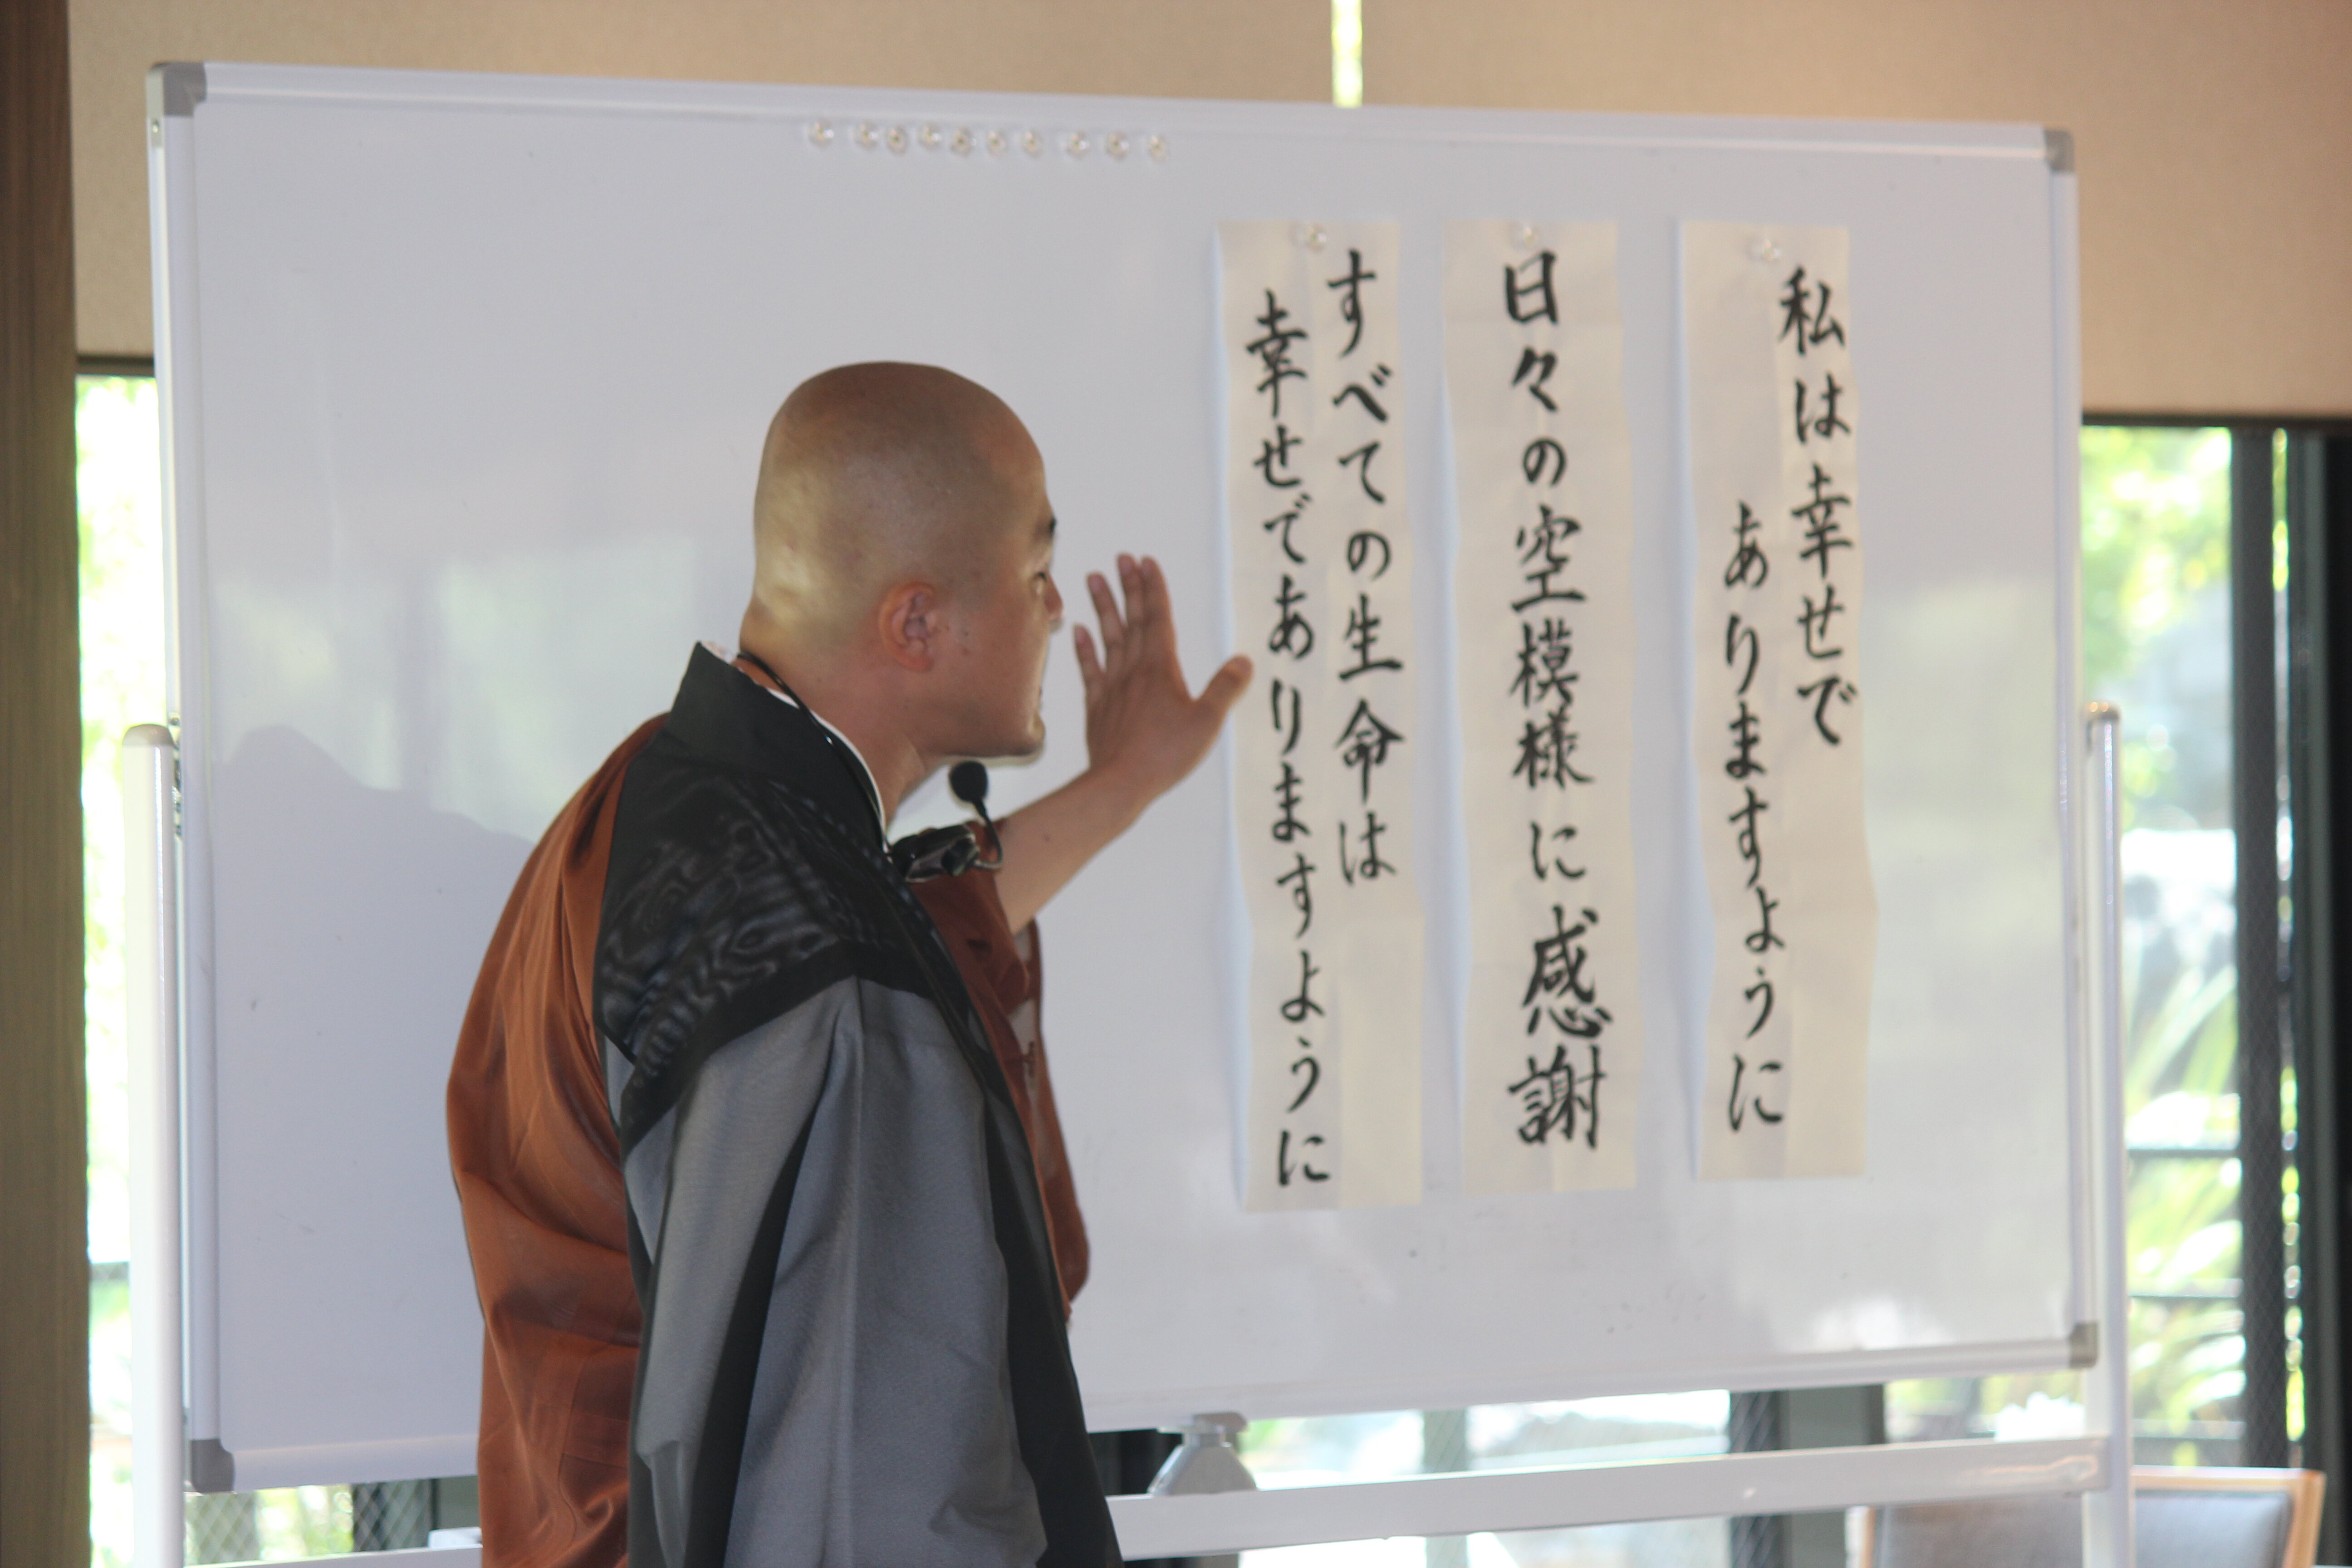 私は幸せで
ありますように
日々の空模様に感謝
すべての生命は
幸せでありますように